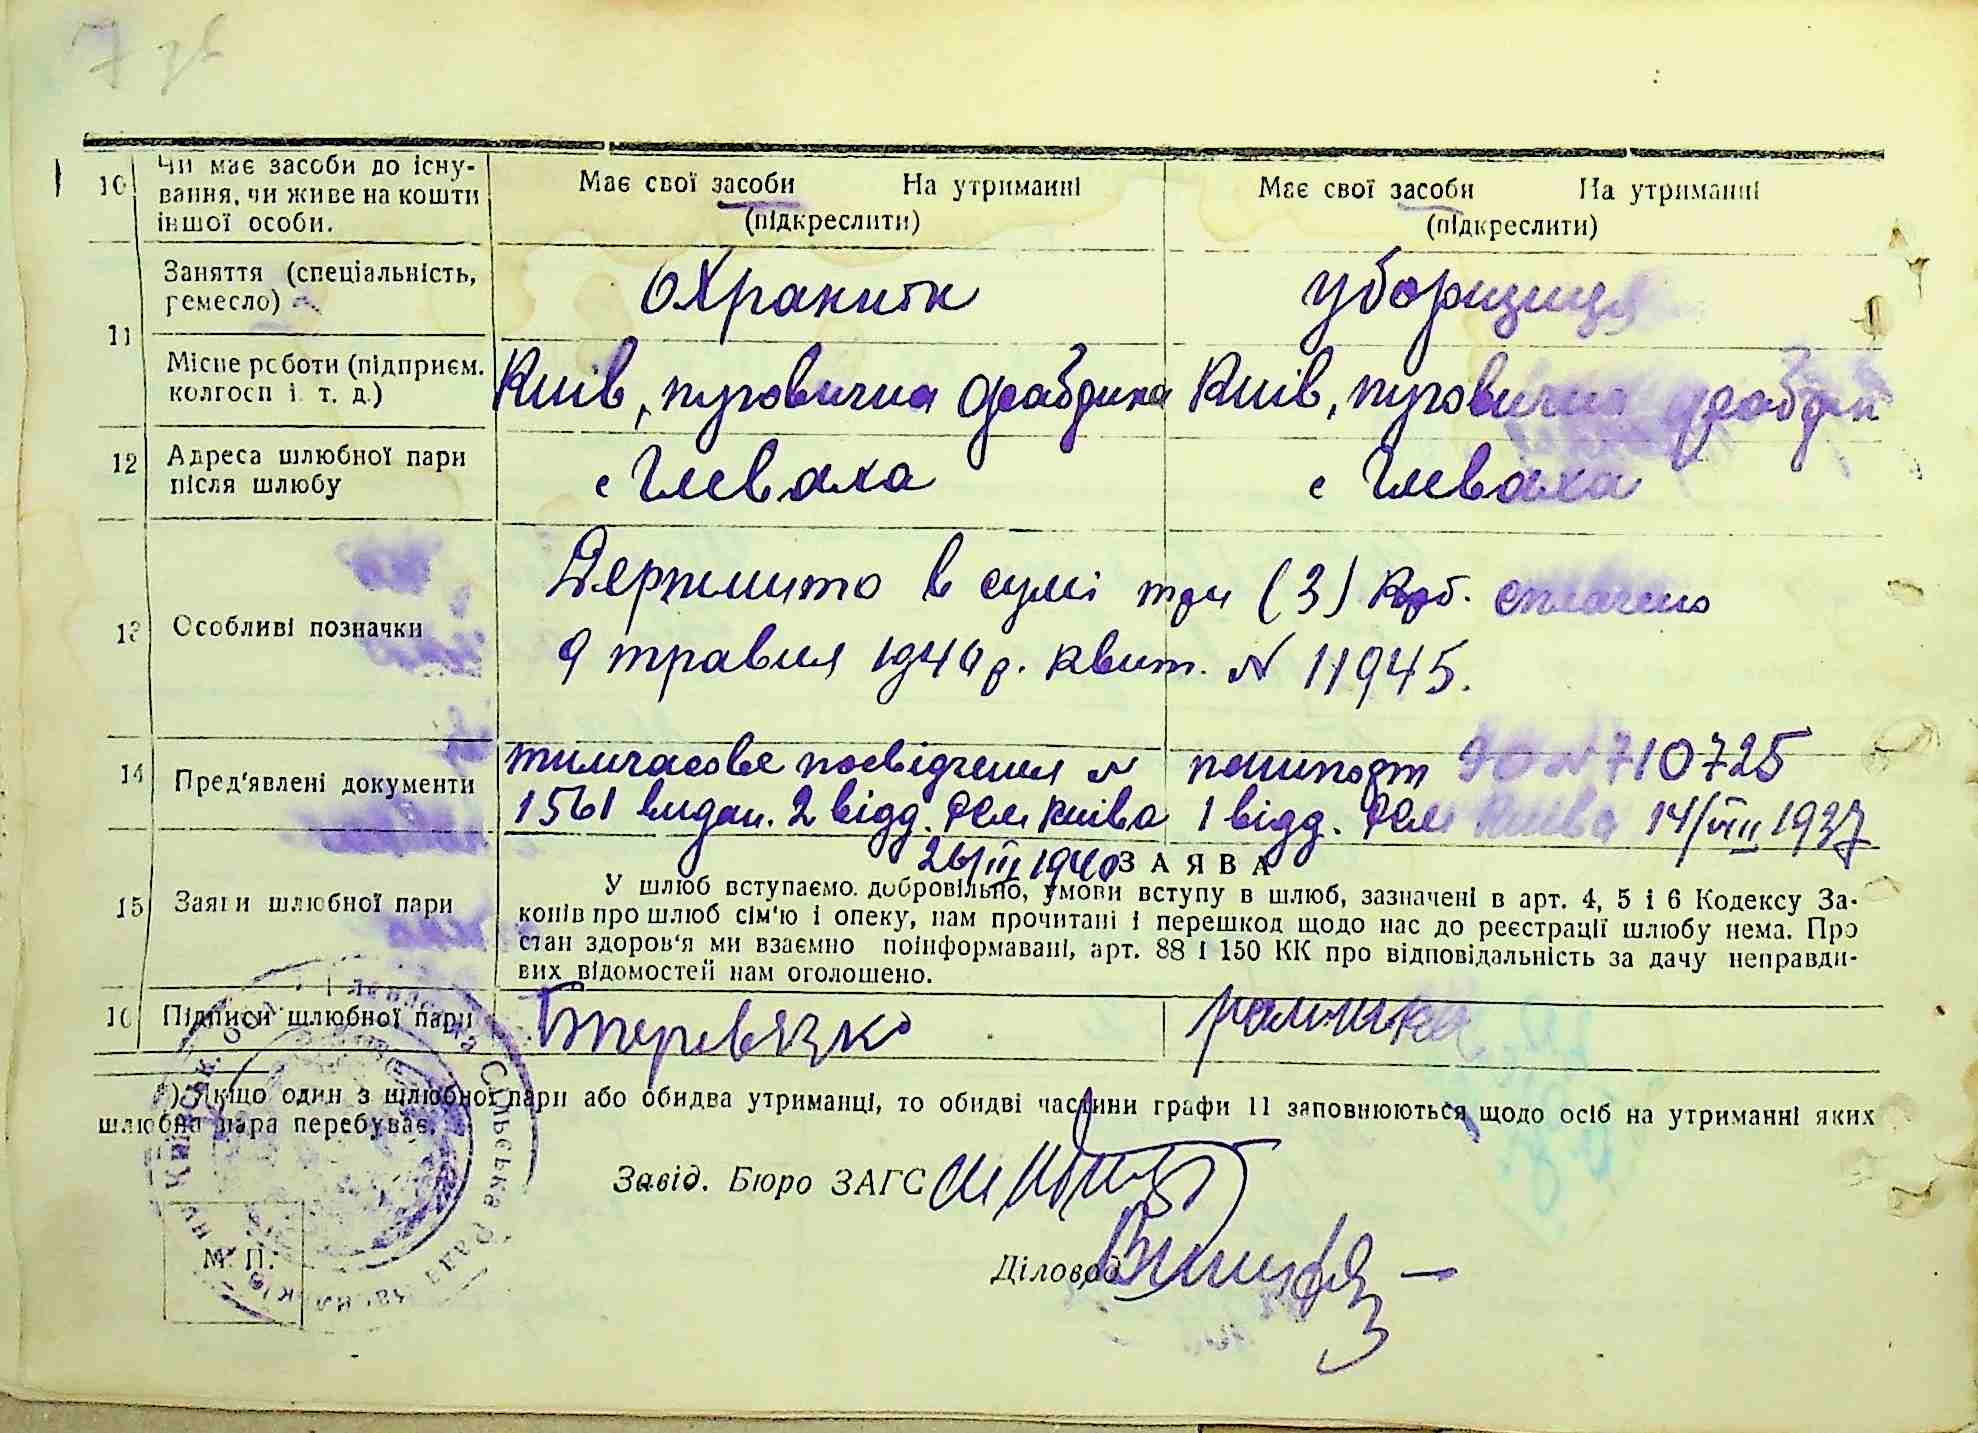 7 зв
10 Чи має засоби до існу-
вання, чи живе на кошти
іншої особи.
Має свої засоби На утриманні
(підкреслити)
Має свої засоби На утриманні
(підкреслити)
11 Заняття (спеціальність,
ремесло)
охраник
уборщиця
Місце роботи (підприєм.
колгосп і т. д.)
Київ, пуговична фабрика
Київ, пуговична фабрик
12 Адреса шлюбної пари
після шлюбу
с Глеваха
с Глеваха
13 Особливі позначки
Держмито в сумі три (3) крб. сплачено
9 травня 1940 р. квит. N 11945.
14 Пред'явлені документи
тимчасове посвідчення N
1561 видан. 2 відд. РСМ Київа
26/III 1940
пашпорт N 710725
1 відд. РСМ Київа 14/VIII 1937
15 Заяви шлюбної пари
ЗАЯВА
У шлюб вступаємо. добровільно, умови вступу в шлюб, зазначені в арт. 4, 5 і 6 Кодексу За-
конів про шлюб сім'ю і опеку, нам прочитані і перешкод щодо нас до реєстрації шлюбу нема. Про
стан здоров'я ми взаємно поінформавані, арт. 88 і 150 КК про відповідальність за дачу неправди-
вих відомостей нам оголошено.
16 Підписи шлюбної пари
*) Якщо один з шлюбної пари або обидва утриманці, то обидві частини графи 11 заповнюються щодо осіб на утриманні яких
шлюбна пара перебуває.
Завід. Бюро ЗАГС
Діловод
М. П.
Сільська Рада